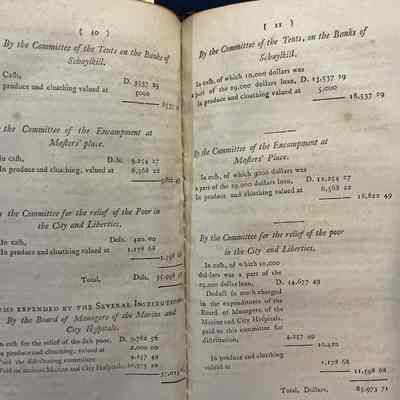 ( 10 )
By the Committee of the Tents on the Banks of
Schuylkill.
Cash, D. 3537 29
produce and cloathing valued at 5000
8537
the Committee of the Encampment at
Masters' place.
In cash, Dols. 9,254 27
In produce and cloathing, valued at 6,568 22
the Committee for the relief of the Poor in
the City and Liberties.
In cash, Dols. 420 00
In produce and cloathing, valued at 1,178 68
1,598
Total, Dols. 35,998
EXPENDED BY THE SEVERAL
By the Board of Managers of the Marine and
City Hospitals.
In cash for relief of the sick poor, D. 9,782 56
produce and cloathing valued at 2,000 00
Paid the distributing committee 4,257 49
Marine and City Hospitals,
( 11 )
By the Committee of the Tents, on the Banks of
Schuylkill.
In cash, of which 10,000 dollars was
a part of the 29,000 dollars loan, D. 13,537 29
In produce and cloathing valued at 5,000
18,537 29
By the Committee of the Encampment at
Masters' Place.
In cash, of which 3000 dollars was
a part of the 29,000 dollars loan, D. 12,254 27
In produce and cloathing, valued at 6,568 22
18,822 49
By the Committee for the relief of the poor
in the City and Liberties.
In cash, of which 10,000
dollars was a part of the
29,000 dollars loan, D. 14,677 49
Deduct so much charged
in the expenditures of the
Board of Managers of the
Marine and City Hospitals,
paid to this committee for
distribution, 4,257 49
10,420
In produce and cloathing
valued at 1,178 68
11,598 68
Total, Dollars, 85,973 71